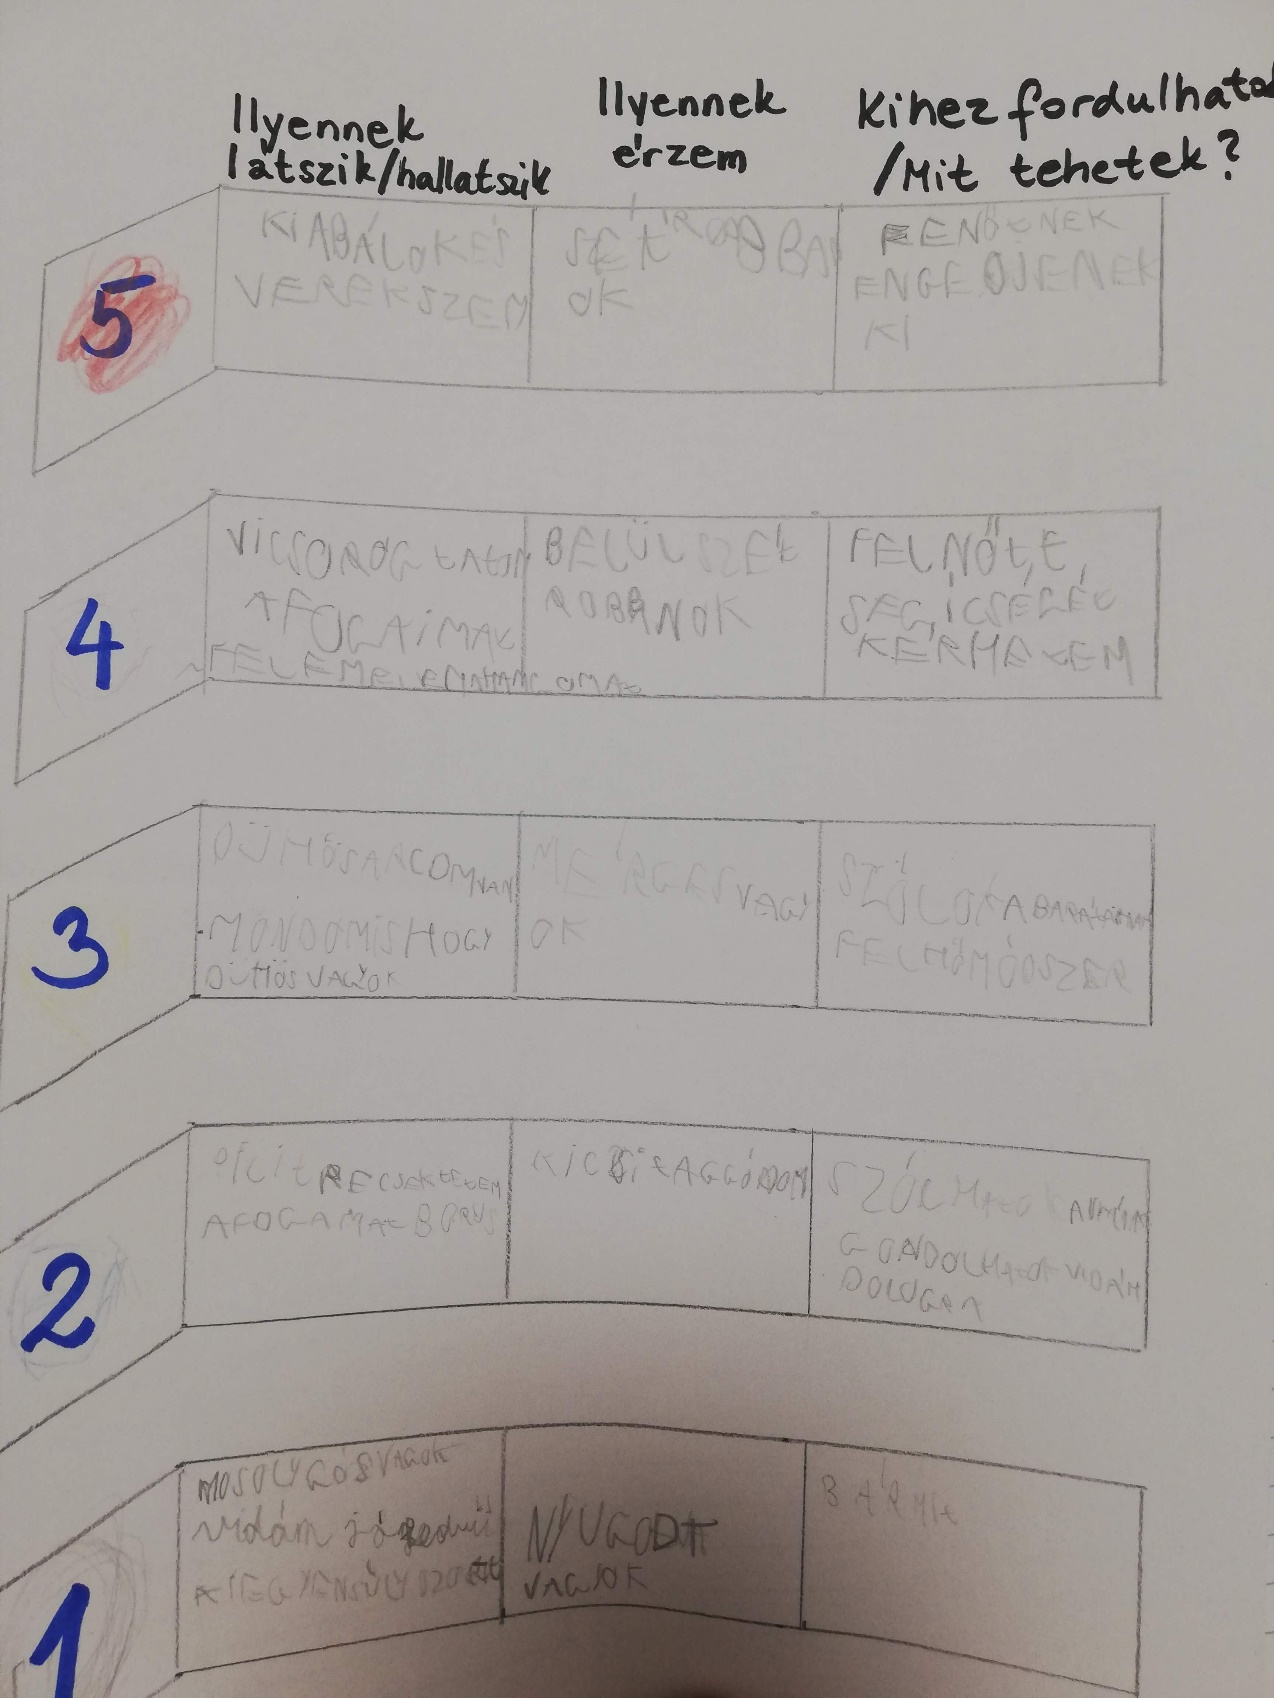 Ilyennek
látszik/hallatszik
Ilyennek
érzem
Kihez fordulhatok
/Mit tehetek?
5
KIABÁLOK ÉS
VEREKSZEM
SZÉT ROBBAN
OK
ENGEDJENEK
KI
4
VICSOROG TATOM
A FOGAIMAT
FELEMELEM A HANGOMAT
BELÜL SZÉT
ROBBANOK
FELNŐTT,
KÉRHETEM
3
DÜHÖS ARCOM VAN
MONDOM IS HOGY
DÜHÖS VAGYOK
MÉRGES VAGY
OK
SZÓLOK A BARÁTOMNAK
FELHŐ MÓDSZER
2
PICIT RECSEKTETEM
A FOGAMAT BORUS
KICSIT AGGÓDOM
SZÓLHATOK
GONDOLHATOK VIDÁM
DOLOGRA
1
MOSOLYGÓS VAGOK
vidám jókedvű
KIEGYENSÚLYSZOTT
NYUGODT
VAGYOK
BÁRMIT